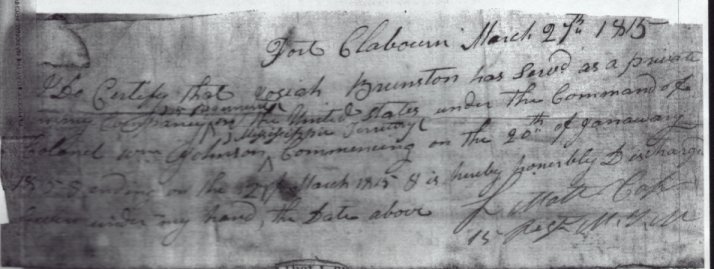 Fort Clabourn March 27th 1815
I Do Certify that Josiah Brunston has Servd as a private
in my Company
in the service of
the United States under the Command of
Mississippi Territory
Colonel Wm Johnson Commencing on the 20th of Janauary
1815 & ending on the 27th March 1815 & is hereby honorbly Discharged
Given under my hand, the Date above
Capt
15 Regt M. T. M